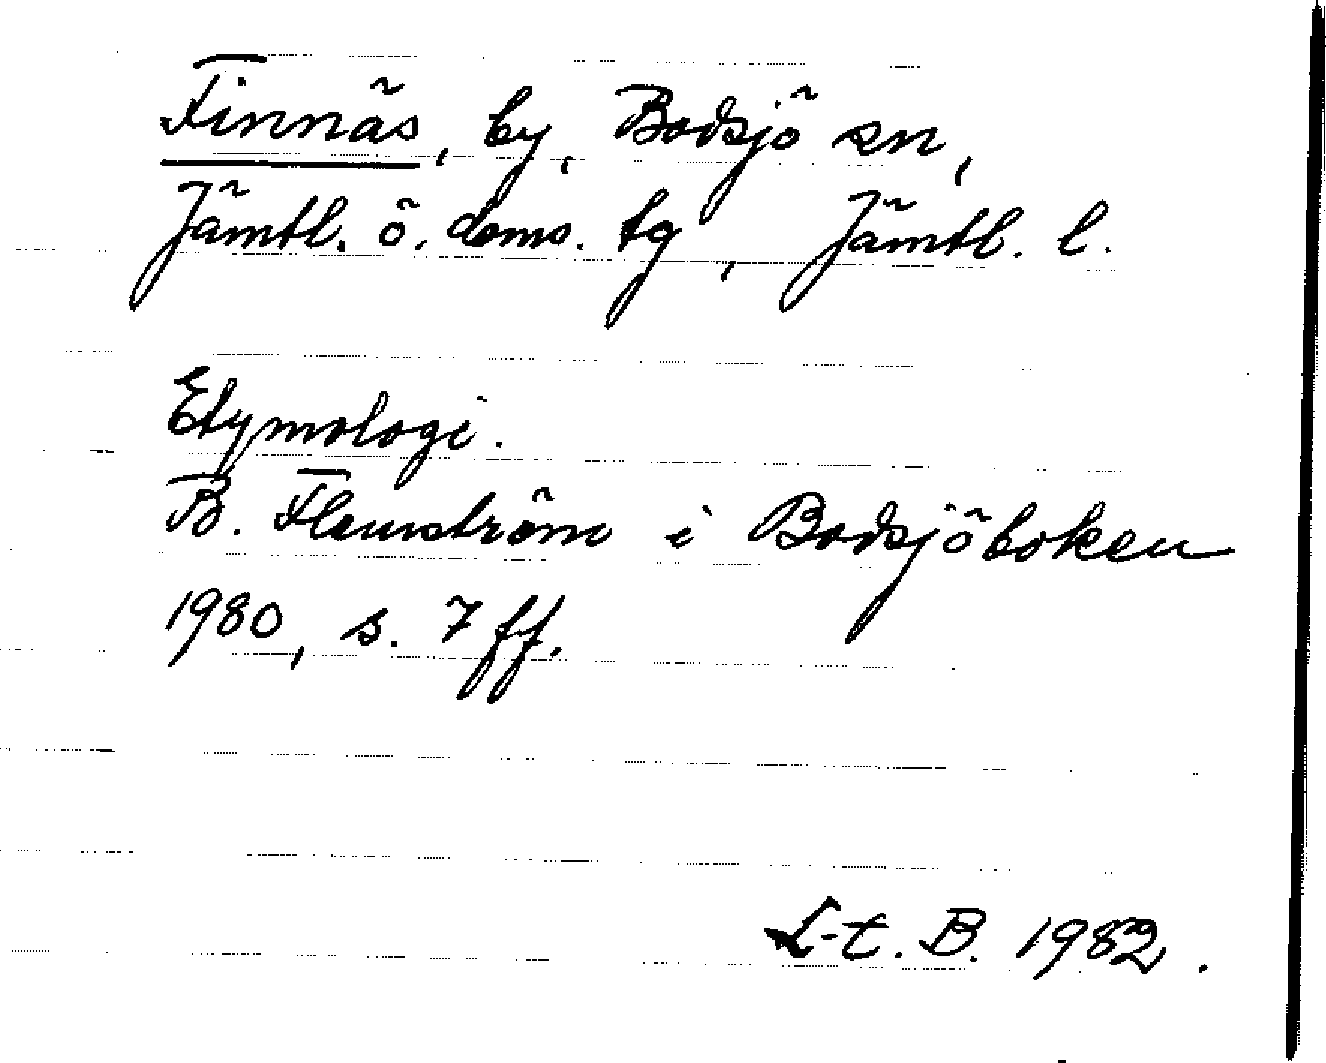 Finnäs, by, Bodsjö sn,
Jämtl. ö. doms. tg, Jämtl. l.
Etymologi.
B. Flemström i Bodsjöboken
1980, s. 7 ff.
L-t. B. 1982.